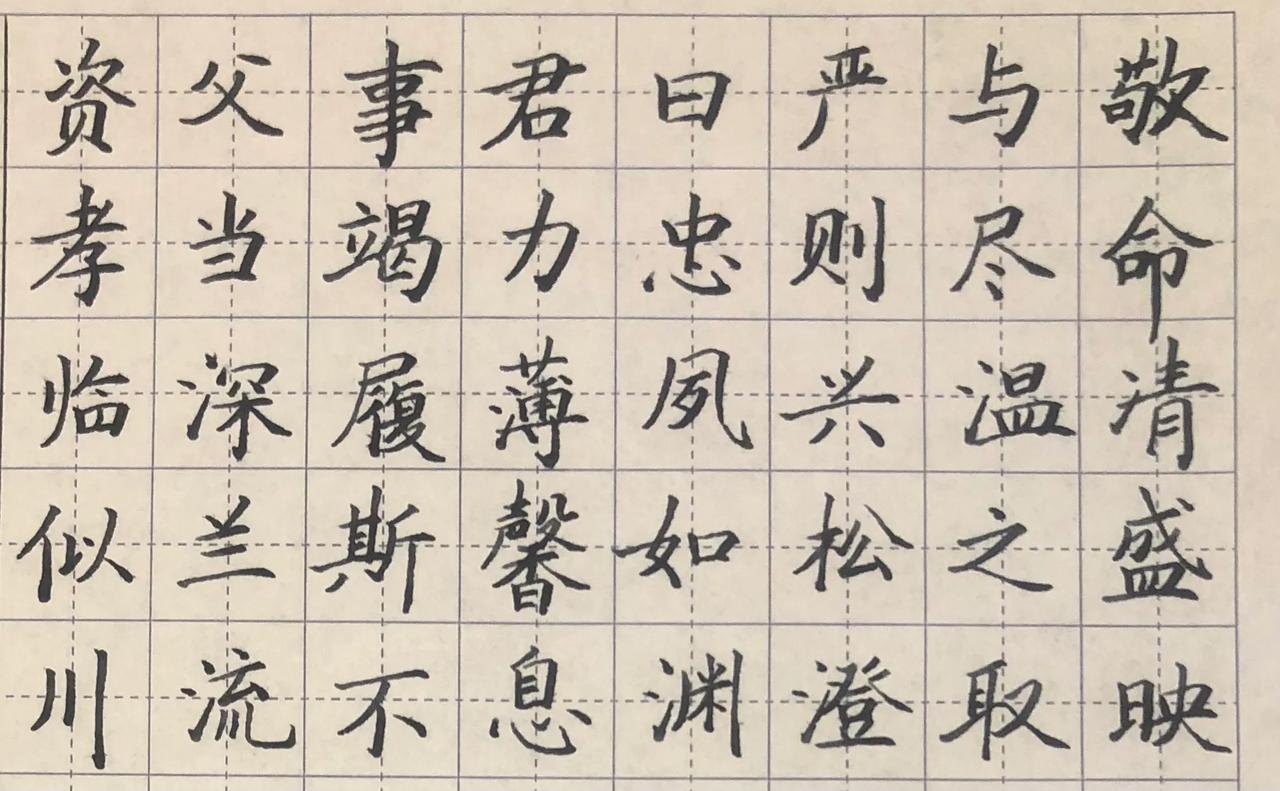 资父事君曰严与敬
孝当竭力忠则尽命
临深履薄夙兴温清
似兰斯馨如松之盛
川流不息渊澄取映